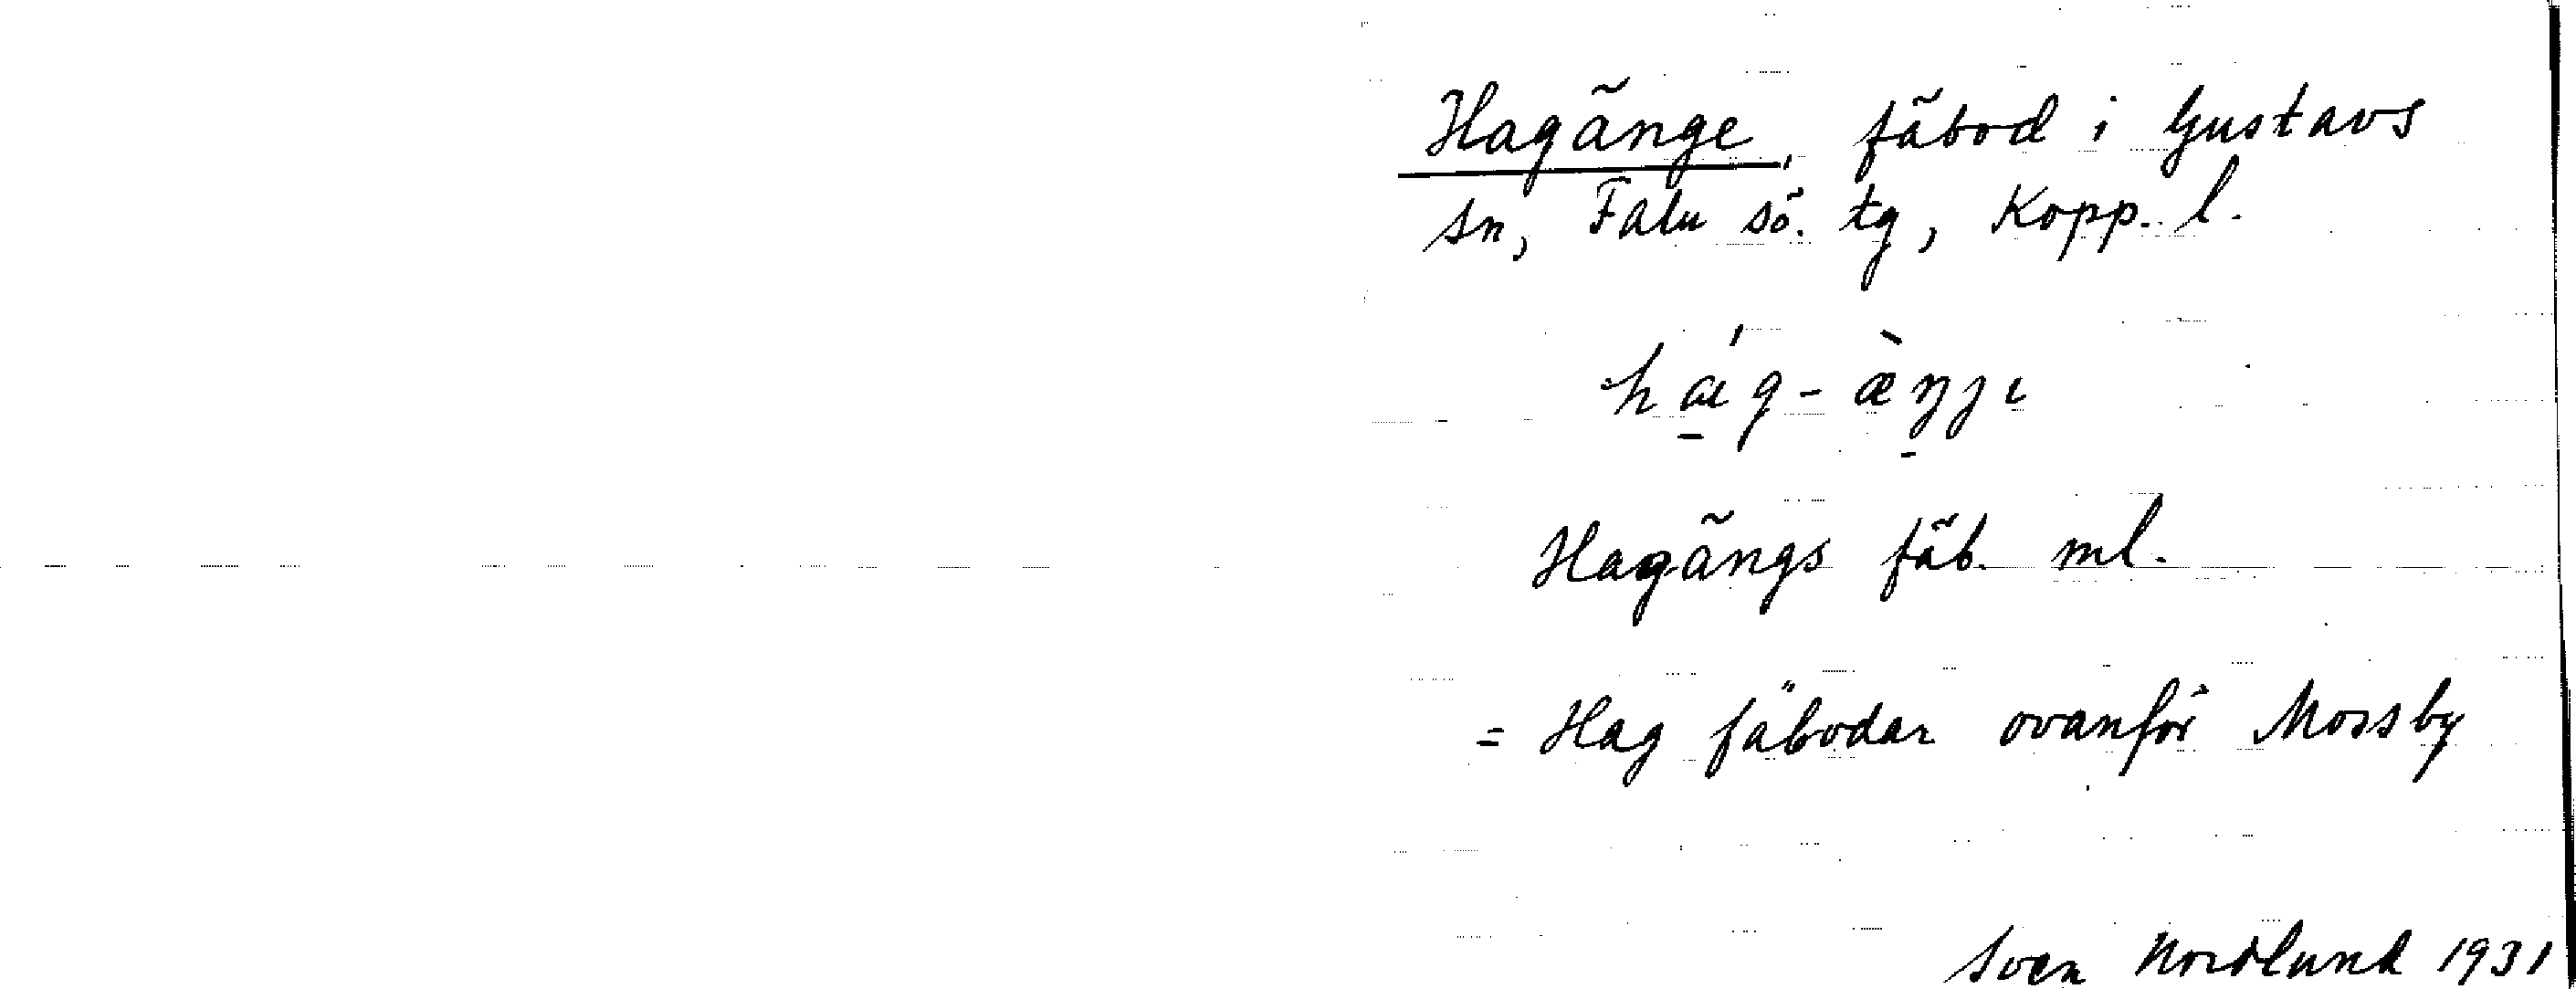 Hagänge, fäbod i Gustavs
sn, Falu sö. tg, Kopp. l.
hág-æ̀ŋɟɩ
Hagängs fäb. ml.
= Hag fäbodar ovanför Mossby
Sven Nordlund 1931